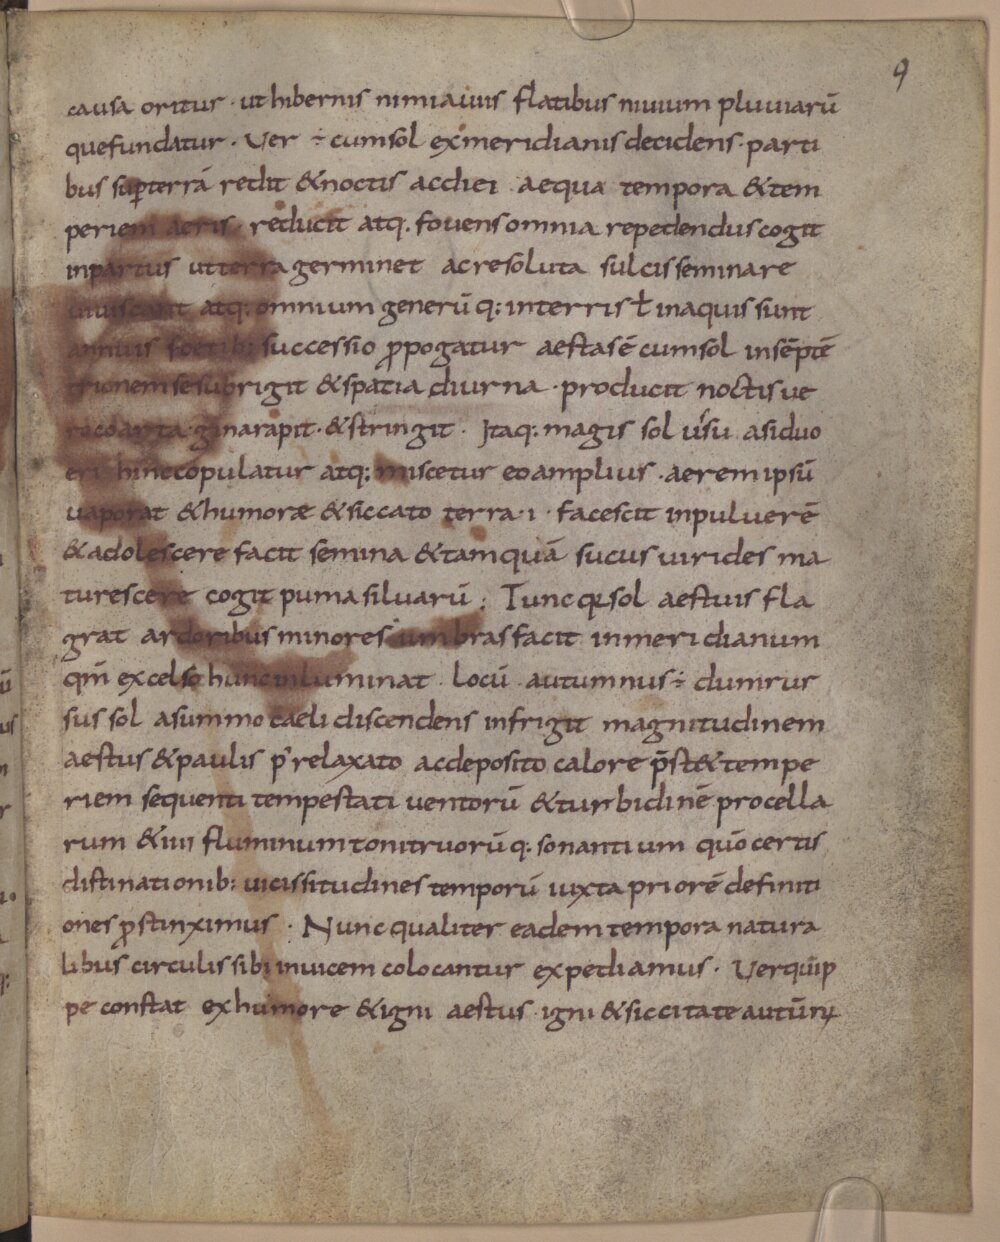 9
causa oritur · ut hibernis nimia uiis flatibus niuium pluuiarū
quefundatur · Ver ÷ cumsol exmeridianis decidens · parti
bus sup̄terrā redit &noctis acdiei aequa tempora &tem
periem aeris · reducit atq. fouens omnia repedendus cogit
inpartus utterra germinet acresoluta sulcis seminare
uiuiscant atq: omnium generū q: interris ł inaquis sunt
annuis foetib: successio ꝓpogatur aestas ē cumsol insēptē
trionem sesubrigit &spatia diurna · producit noctis ue
recoarta · ginarapit · &stringit · Itaq: magis sol usu asiduo
eri hinccopulatur atq: miscetur eoamplius · aerem ipsū
uaporat &humoræ &siccato terra · i · facescit inpuluerē
&adolescere facit semina &tamquā sucus uirides ma
turescere cogit puma siluarū ; Tunc sol aestuis fla
grat ardoribus minores umbras facit inmeridianum
qm̄ excelso hunc inluminat · locū · autumnus ÷ dumrur
sus sol asummo caeli discendens infrigit magnitudinem
aestus &paulis p' relaxato acdeposito calore p̄st&tempe
riem sequenti tempestati uentorū &turbidinē procella
rum &iiii fluminum tonitruorū q: sonantium quō certis
distinationib: uicissitudines temporū iuxta priorē definiti
ones ꝓstinximus · Nunc qualiter eadem tempora natura
libus circulis sibi inuicem colocantur expediamus · Uerquip
pe constat exhumore &igni aestus · igni &siccitate autūnꝝ